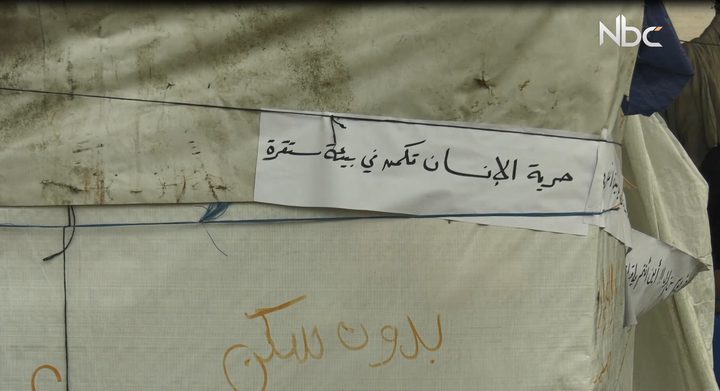 Nbc
حرية الإنسان تكمن في بيئة ستقرة
بدون سكن